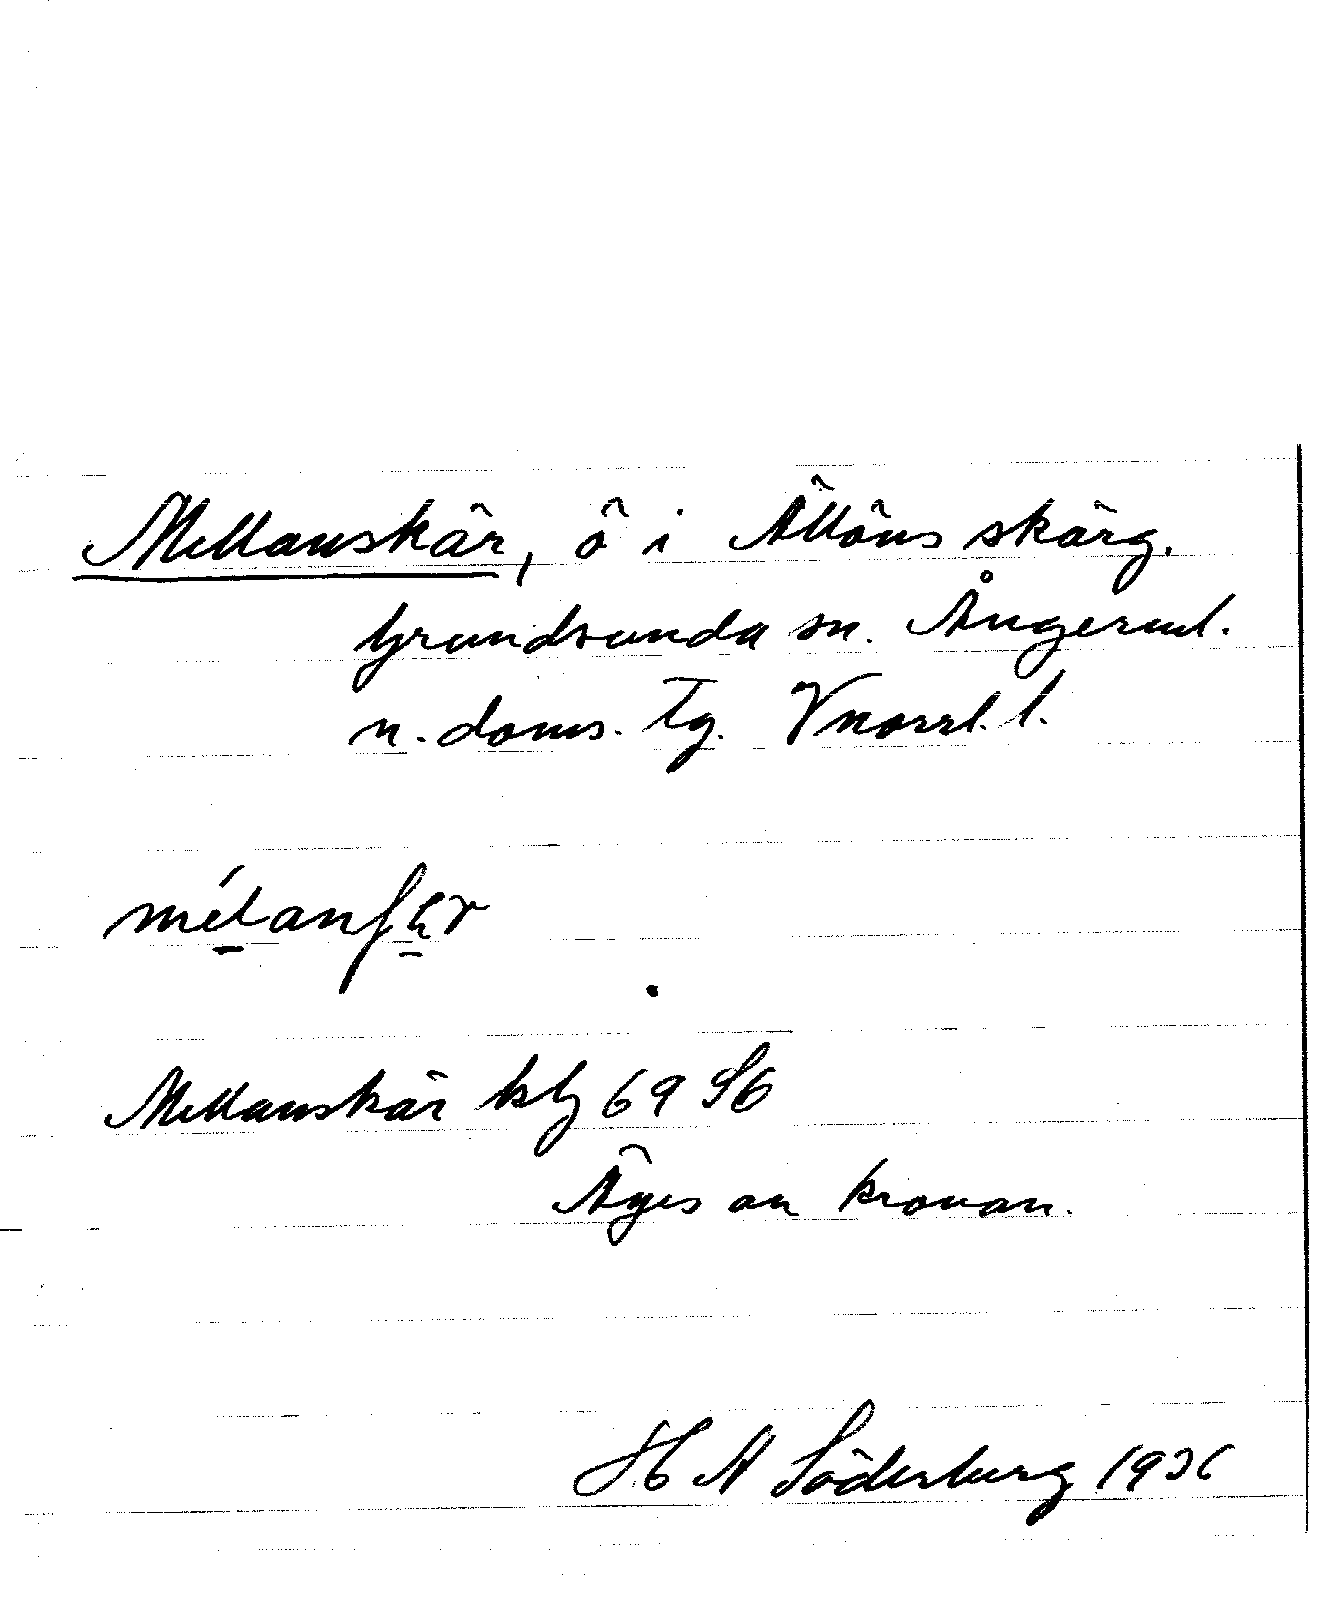 Mellanskär, ö i Ällöns skärg.
Grundsunda sn. Ångerml.
n. doms. Tg. Vnorrl. l.
mélanʃär
Mellanskär kbl 69 S6
Äges av kronan.
H A Söderberg 1936